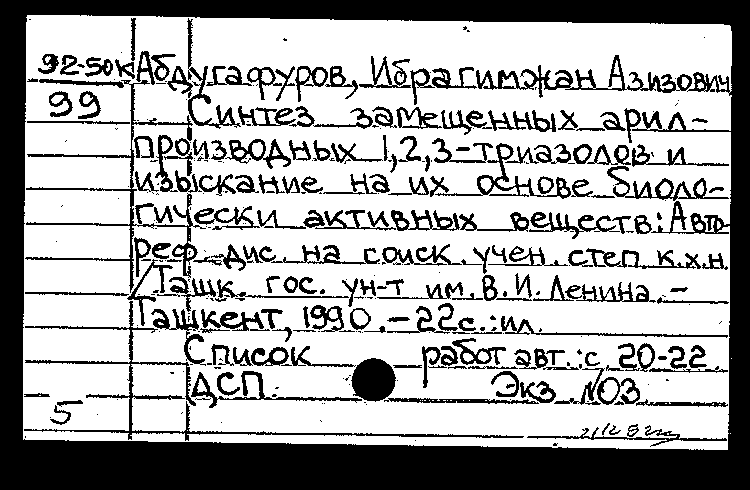 92-50к Абдугафуров, Ибрагимжан Азизович
99 Синтез замещенных арил-
производных 1,2,3-триазолов и
изыскание на их основе биоло-
гически активных веществ: Авто-
реф. дис. на соиск. учен. степ. к.х.н.
/Ташк. гос. ун-т им. В.И. Ленина. -
Ташкент, 1990. - 22 с.: ил.
Список работ авт.: с. 20-22.
ДСП. Экз. №03
5